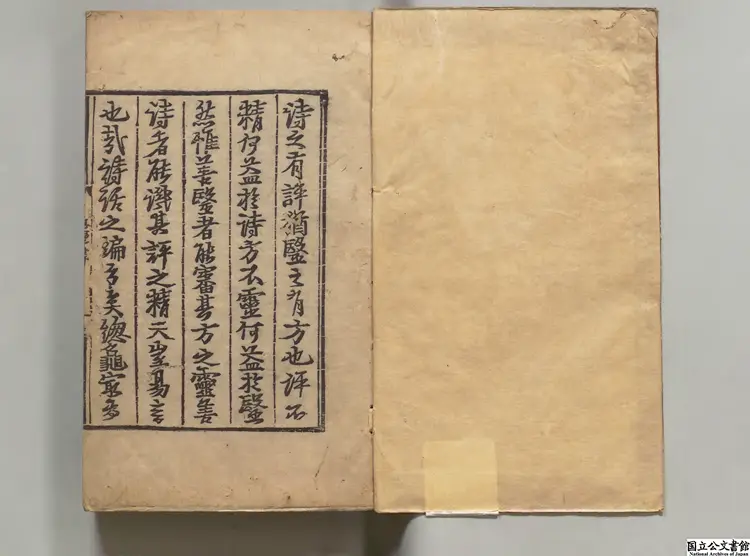 詩之有評猶醫之有方也評不
精何益於詩方不靈何益於醫
然惟善醫者能審其方之靈善
詩者能識其評之精夫豈易言
也哉詩話之編多矣總龜宷多
国立公文書館
National Archives of Japan